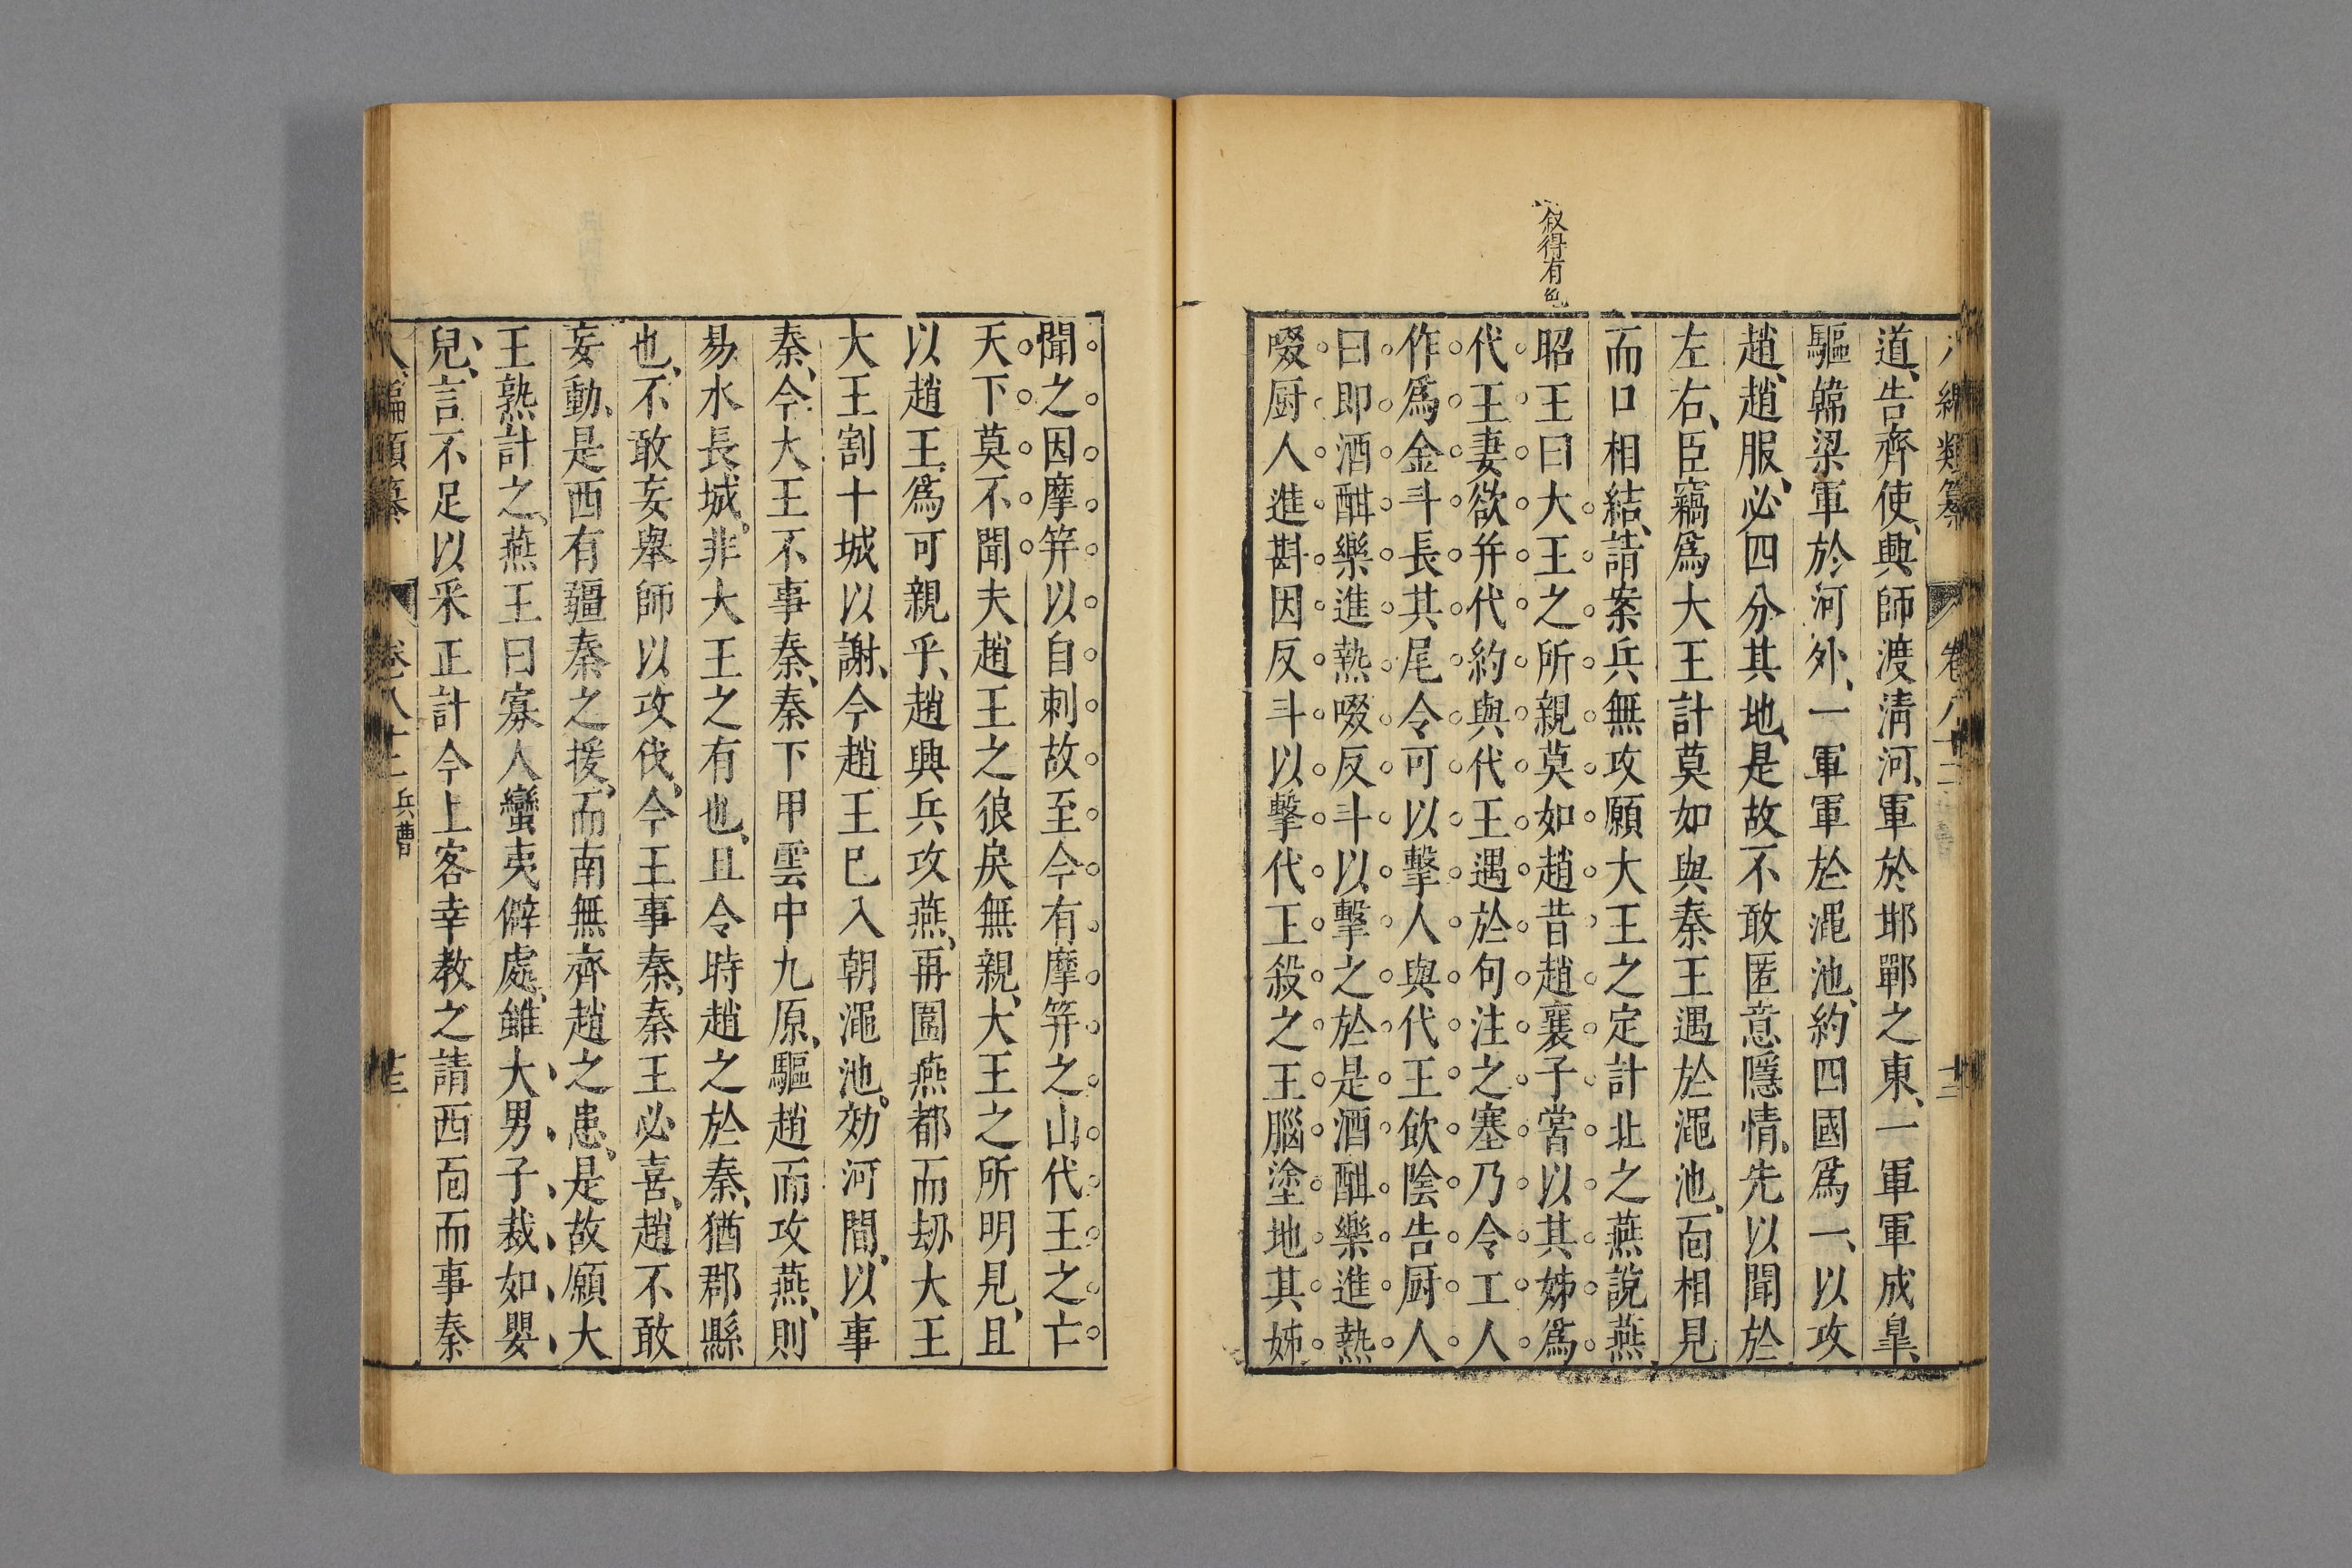 叙得有色
道告齊使興師渡清河軍於邯鄲之東一軍軍成臯
驅韓梁軍於河外一軍軍於澠池約四國爲一以攻
趙趙服必四分其地是故不敢匿意隱情先以聞於
左右臣竊爲大王計莫如與秦王遇於澠池面相見
而口相結請案兵無攻願大王之定計北之燕說燕
昭王曰大王之所親莫如趙昔趙襄子嘗以其姊爲
代王妻欲并代約與代王遇於句注之塞乃令工人
作爲金斗長其尾令可以擊人與代王飲陰告厨人
曰即酒酣樂進熱啜反斗以擊之於是酒酣樂進熱
啜厨人進斟因反斗以擊代王殺之王腦塗地其姊
聞之因摩笄以自刺故至今有摩笄之山代王之亡
天下莫不聞夫趙王之狼戾無親大王之所明見且
以趙王爲可親乎趙興兵攻燕再圍燕都而刼大王
大王割十城以謝今趙王已入朝澠池効河間以事
秦今大王不事秦秦下甲雲中九原驅趙而攻燕則
易水長城非大王之有也且今時趙之於秦猶郡縣
也不敢妄舉師以攻伐今王事秦秦王必喜趙不敢
妄動是西有疆秦之援而南無齊趙之患是故願大
王熟計之燕王曰寡人蠻夷僻處雖大男子裁如嬰
兒言不足以采正計今上客幸教之請西面而事秦
卷八十二 兵曹